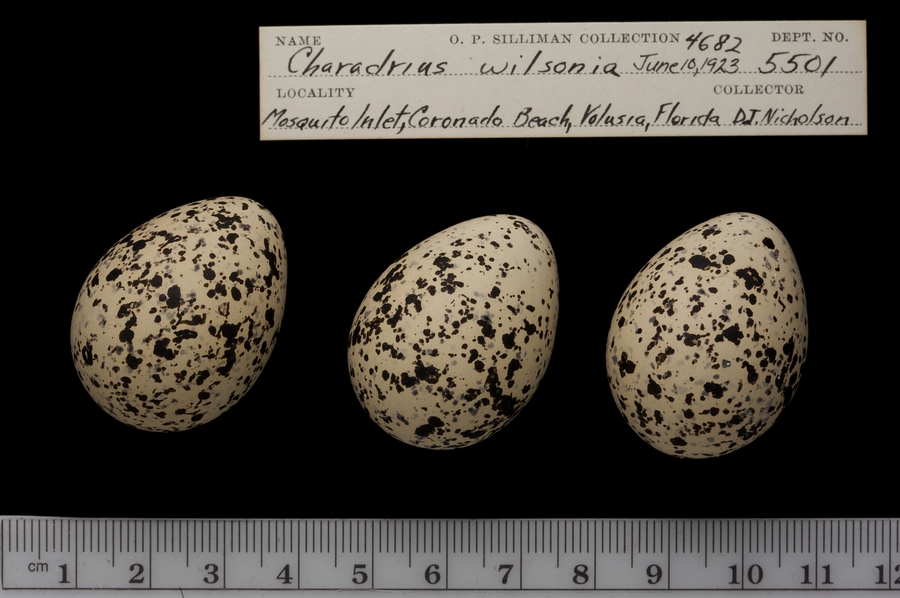 NAME O. P. SILLIMAN COLLECTION 4682 DEPT. NO.
Charadrius wilsonia June 10, 1923 5501
LOCALITY COLLECTOR
Mosquito Inlet, Coronado Beach, Volusia, Florida D.J. Nicholson
cm 1 2 3 4 5 6 7 8 9 10 11 12